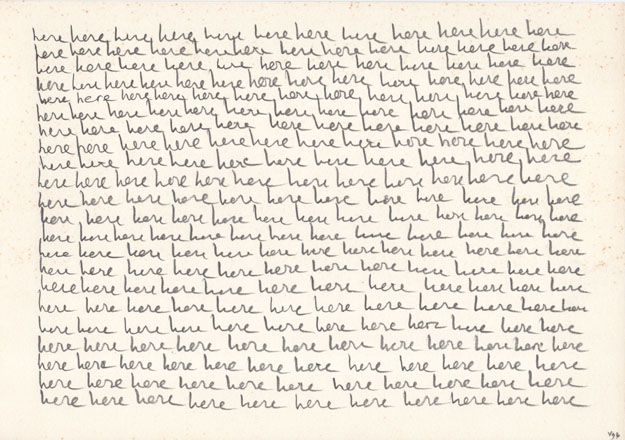 here here, here, here, here here here here here here here here
here here here here here here here here here here here here here
here here here here here, here here here here here here here
here here here here here here here here here here here here here here
here, here here here, here, here, here, here, here here here, here here
here here here here here here here here here here here here here here
here here here, here, here here here here here here here here
here here here here here here here here here here here here here
here here here here here here here here here here here
here here here here here here here here here here here here
here here here here here here here here here here here here
here here here here here here here here here here here here here
here here here here here here here here here here here here here
here here here here here here here here here here here here here
here here here here here here here here here here here here
here here here here here here here here here here here here here
here here here here here here here here here here here here
here here here here here here here here here here here here
here here here here here here here here here here here here
here here here here here here here here here here here here
here here here here here here here here here here here here
here here here here here here here here here here here